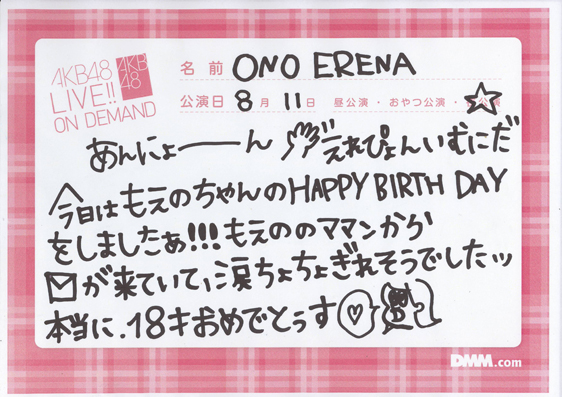 AKB48
LIVE!!
ON DEMAND
AKB
48
名前 ONO ERENA
公演日 8月 11日 昼公演・おやつ公演・
あんにょーーん えれぴょんいむにだ
今日はもえのちゃんのHAPPY BIRTH DAY
をしましたぁ!!!もえののママンから
が来ていて、涙ちょちょぎれそうでしたッ
本当に、18才おめでとぅす
DMM.com